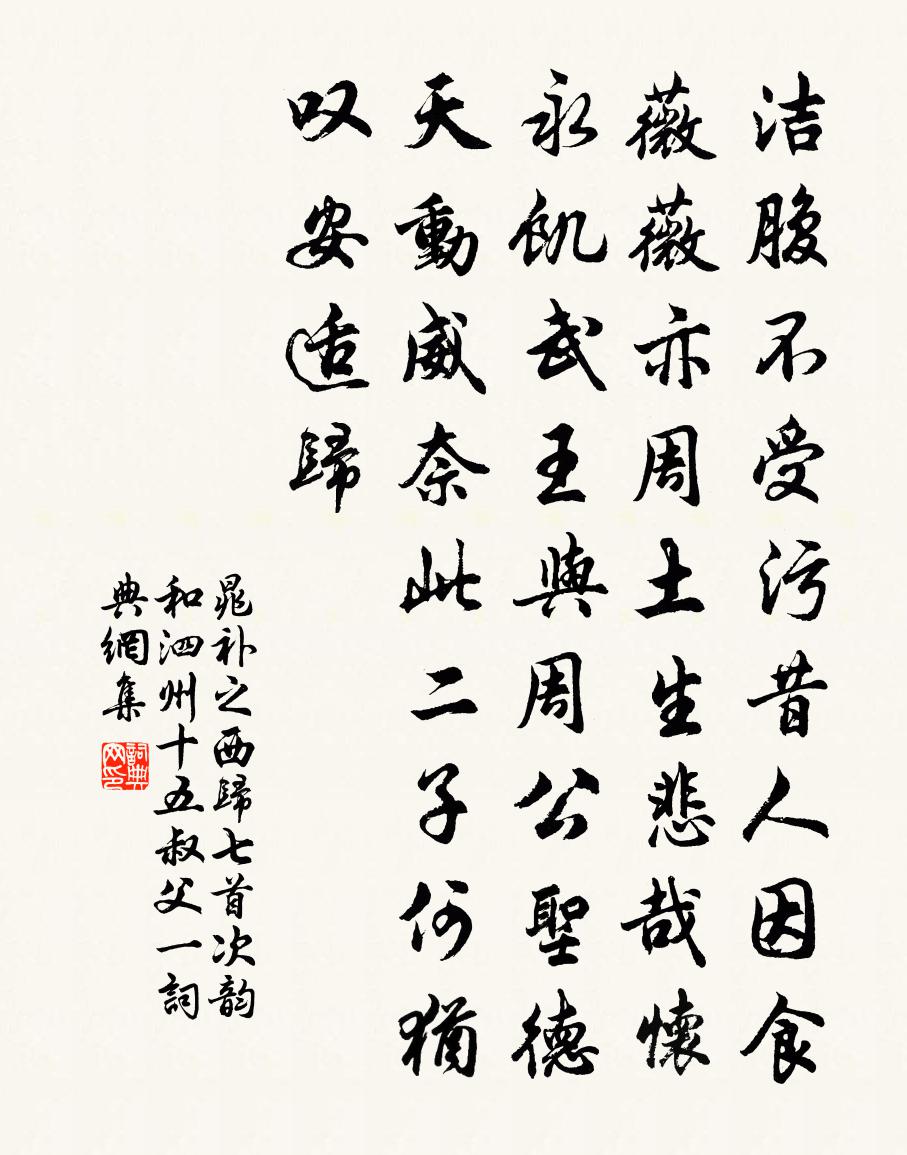 洁腹不受污昔人因食
薇薇亦周土生悲哉懷
永飢武王與周公聖德
天動威奈此二子何猶
叹安适歸
晁补之西歸七首次韵
和泗州十五叔父一詞
典網集
詞典
网印